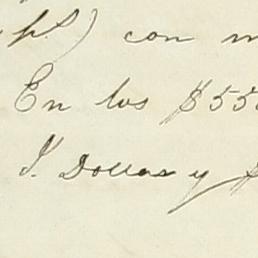 con
En los $55
I. Dollas y $